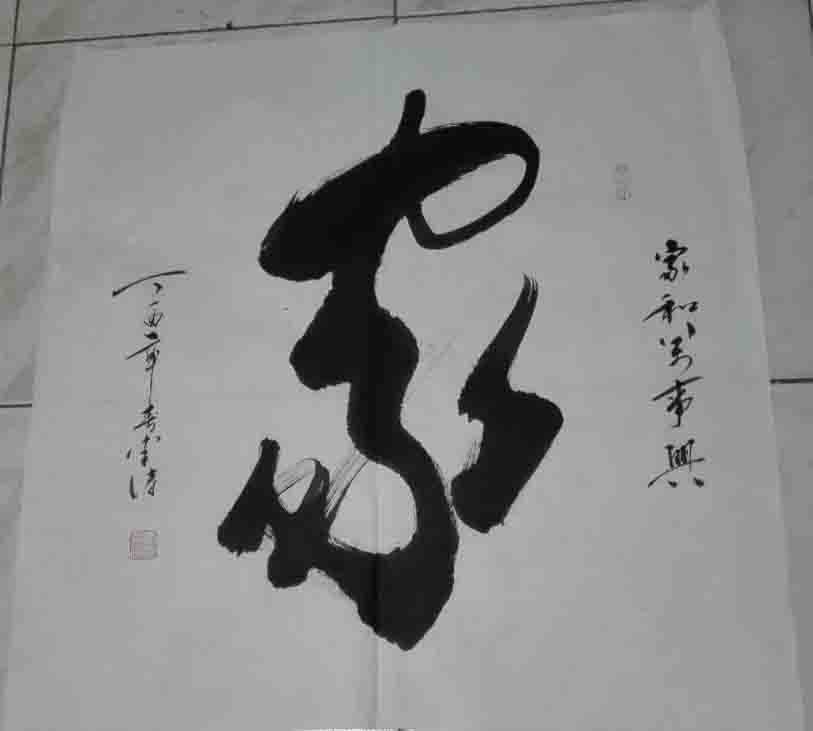 家和萬事興
家
丁酉年春